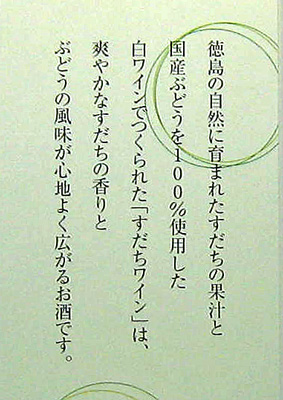 徳島の自然に育まれたすだちの果汁と
国産ぶどうを100%使用した
白ワインでつくられた「すだちワイン」は、
爽やかなすだちの香りと
ぶどうの風味が心地よく広がるお酒です。